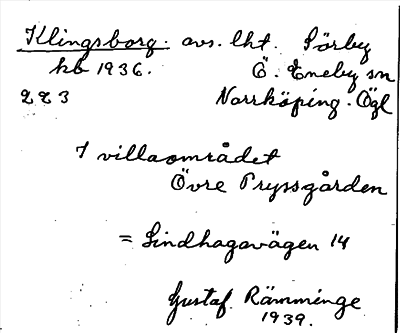 Klingsborg. avs. lht. Sörby
kb 1936. Ö. Eneby sn
2 2 3 Norrköping. Ögl
I villaområdet
Övre Pryssgården
= Lindhagavägen 14
Gustaf Rämminge
1939.